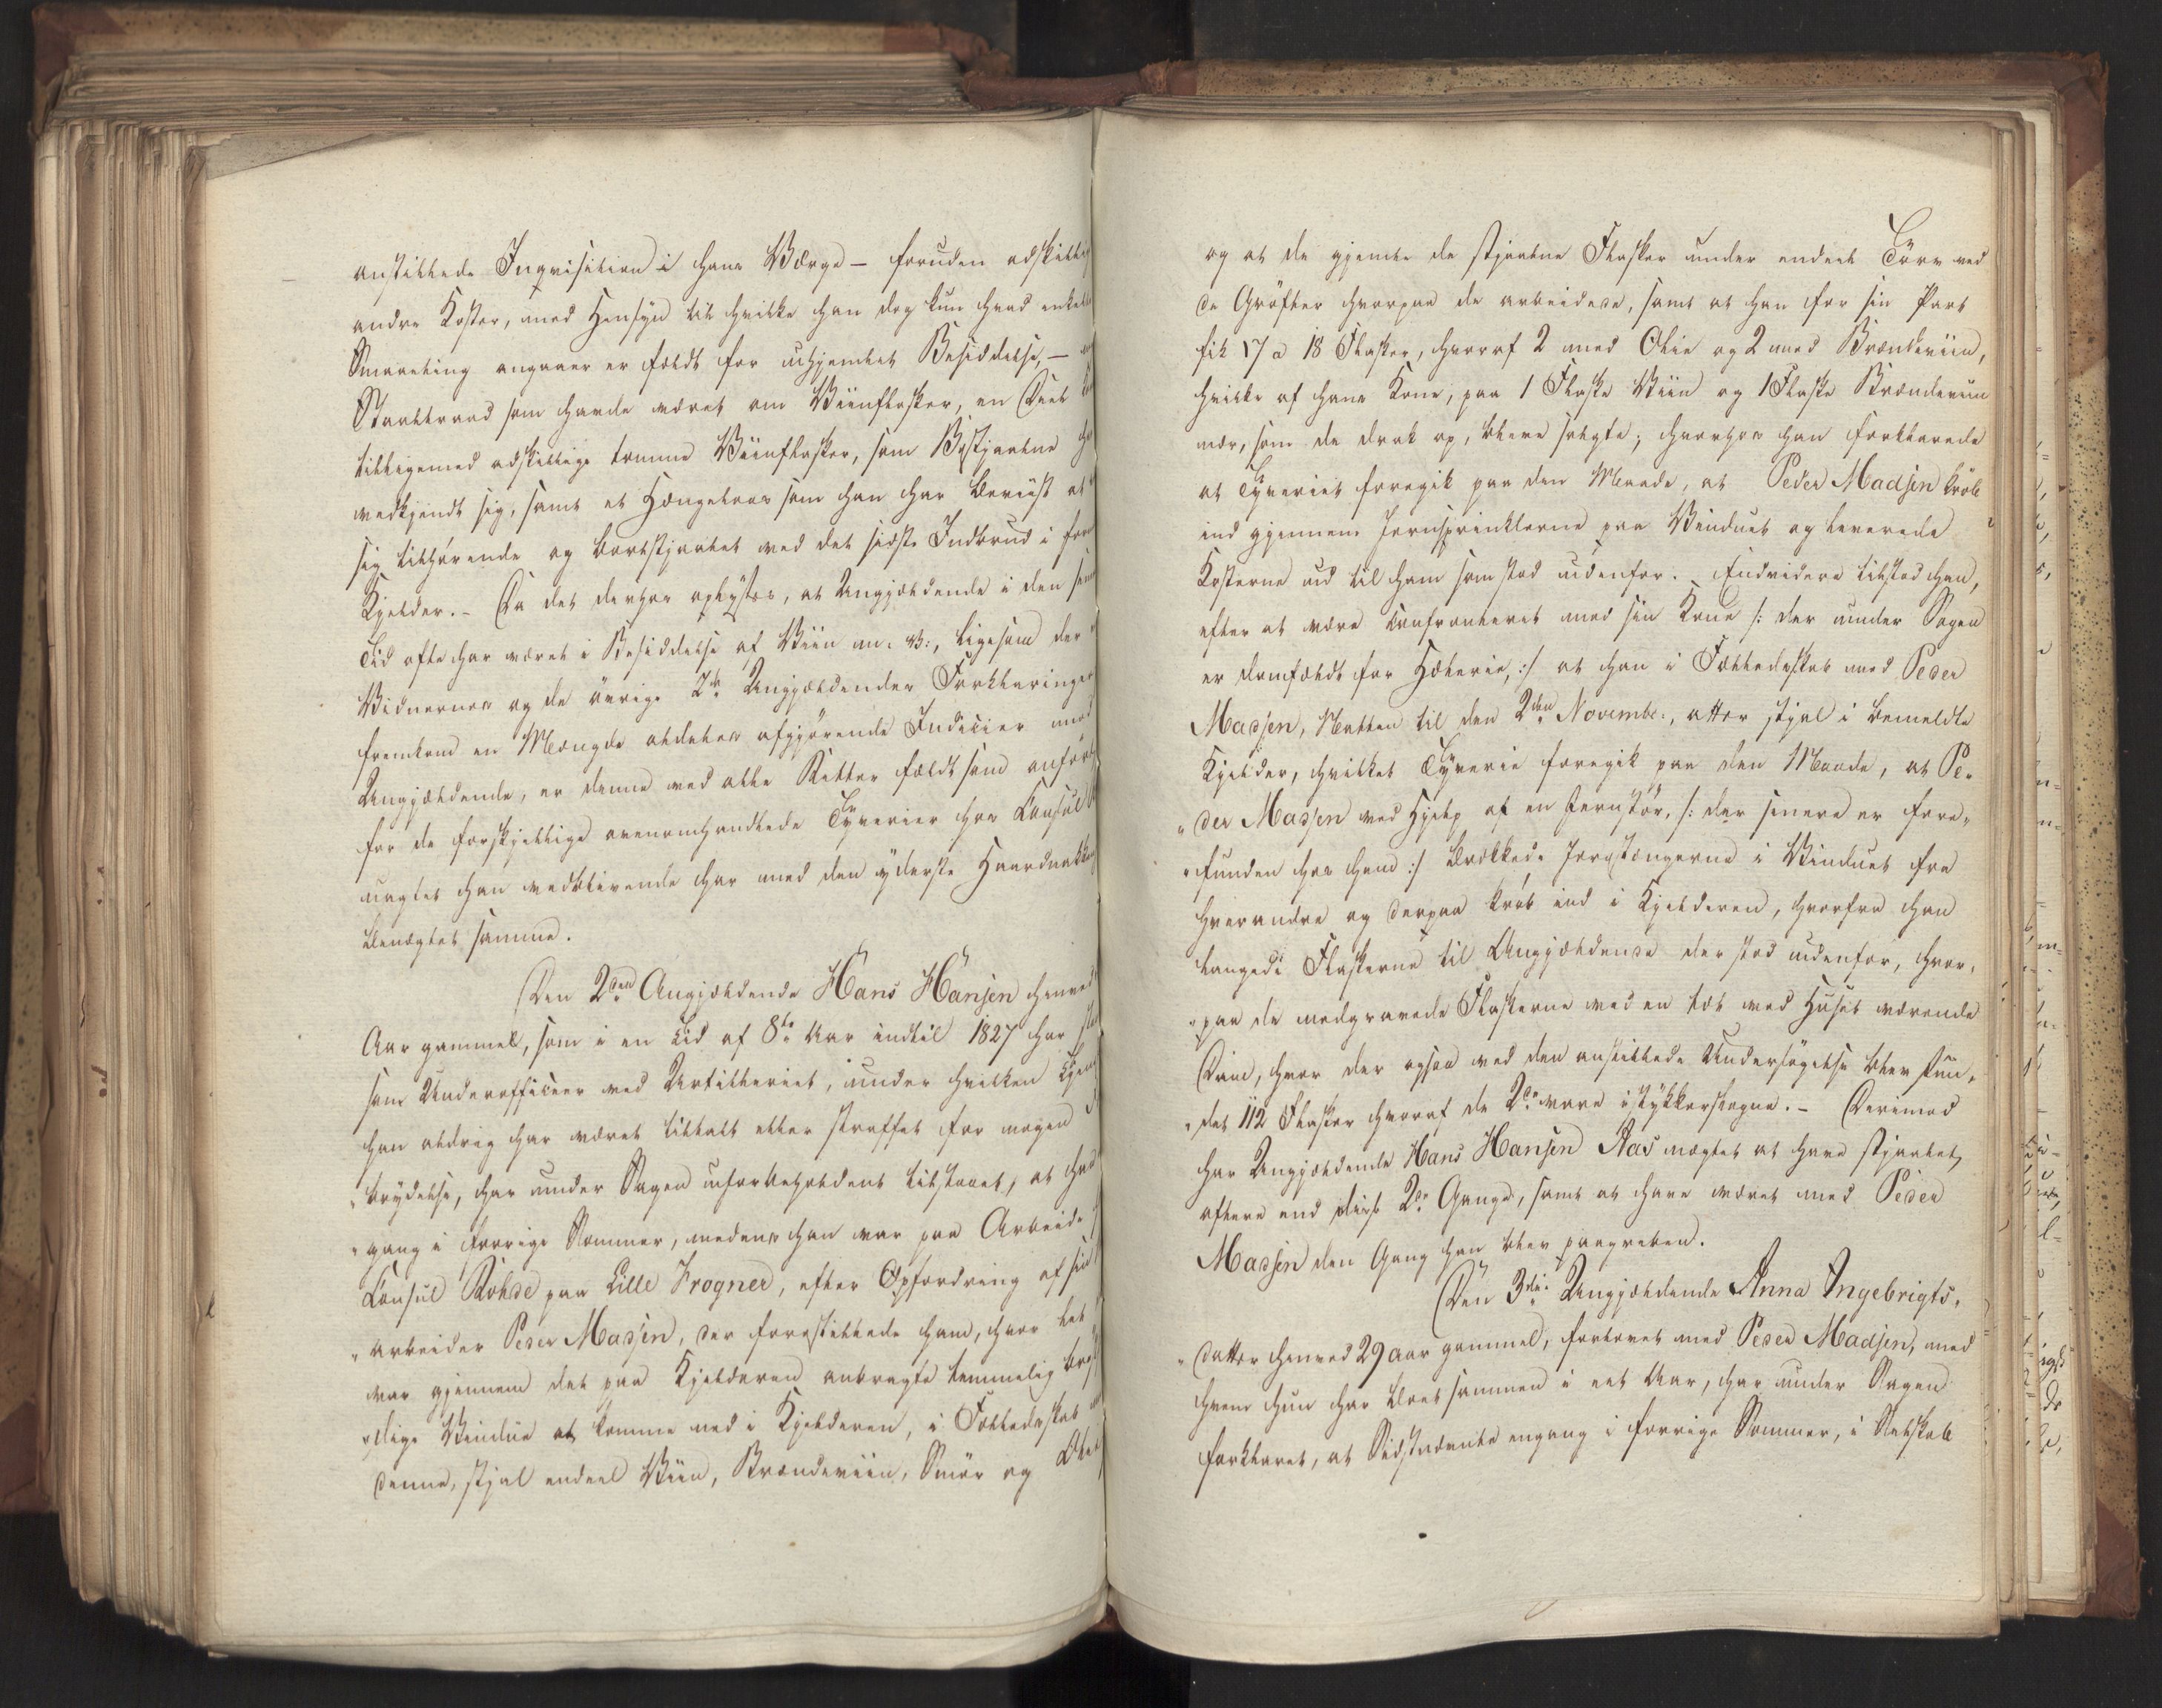 anstillede Inqvisition i hans Værge – foruden adskillig
andre Koster, med Hensyn til hvilke han dog kun hvad enkelte
Smaaeting angaaer er fældt for uhjemlet Besiddelse, –
Staaltraad som havde været om Viinflasker, en Deel
tilligemed adskillige tomme Viinflasker, som Bestjaalne
vedkjendt sig, samt et Hængelaas som han har beviist at
sig tilhørende og bortstjaalet ved det sidste Indbrud i
Kjelder. – Da det derhos oplystes, at Angjældende i den
Tid ofte har været i Besiddelse af Viin m: V:, ligesom der
Vidnernes og de øvrige 2de Angjældendes Forklaringer
fremkom en Mængde aldeles afgjørende Indicier mod
Angjældende, er denne ved alle Retter fældt som anført
for de forskjellige ovenomhandlede Tyverier hos Consul
uagtet han vedblivende har med den yderste Haardnakken
benægtet samme.
Den 2den Angjældende Hans Hansen henved
Aar gammel, som i en Tid af 8te Aar indtil 1827 har
som Underofficeer ved Artilleriet, under hvilken
han aldrig har været tiltalt eller straffet for nogen
brydelse, har under Sagen uforbeholdent tilstaaet, at han
gang i forrige Sommer, medens han var paa Arbeide
Consul Rohde paa Lille Frogner, efter Opfordring af sin
arbeider Peder Madsen, der forestillede ham, hvor let
var gjennem det paa Kjelderen anbragte temmelig
dige Vindue at komme ned i Kjelderen, i Fælledsskab
denne, stjal endeel Viin, Brændeviin, Smør og
og at de gjemte de stjaalne Flasker under endeel Törv ved
de Grøfter hvorpaa de arbeidede, samt at han for sin Part
fik 17 a 18 Flasker, hvoraf 2 med Olie og 2 med Brændeviin,
hvilke af hans Kone, paa 1 Flaske Viin og 1 Flaske Brændeviin
nær, som de drak op, bleve solgte; hvorhos han forklarede
at Tyveriet foregik paa den Maade, at Peder Madsen krøb
ind gjennem Jernsprinklerne paa Vinduet og leverede
Kosterne ud til ham som stod udenfor. Endvidere tilstod han,
efter at være confronteret med sin Kone /: der under Sagen
er domfældt for Hæleri, :/ at han i Fælledsskab med Peder
Madsen, Natten til den 2den Novembr:, atter stjal i bemeldte
Kjelder, hvilket Tyverie foregik paa den Maade, at Pe-
der Madsen ved Hjelp af en Jernstör, /: der senere er fore-
funden hos ham :/ brækkede Jernstængerne i Vinduet fra
hverandre og derpaa krøb ind i Kjelderen, hvorfra han
langede Flaskerne til Angjældende der stod udenfor, hvor-
paa de nedgravede Flaskerne ved en tæt ved Huset værende
Dam, hvor der ogsaa ved den anstillede Undersøgelse blev fun-
det 112 Flasker hvoraf de 2de vare istykkerslagne. – Derimod
har Angjældende Hans Hansen Aas nægtet at have stjaalet
oftere end disse 2de Gange, samt at have været med Peder
Madsen den Gang han blev paagreben.
Den 3die Angjældende Anna Ingebrigts-
datter henved 29 aar gammel, forlovet med Peder Madsen, med
hvem hun har boet sammen i eet Aar, har under Sagen
forklaret, at Sidstnævnte engang i forrige Sommer, i Selskab